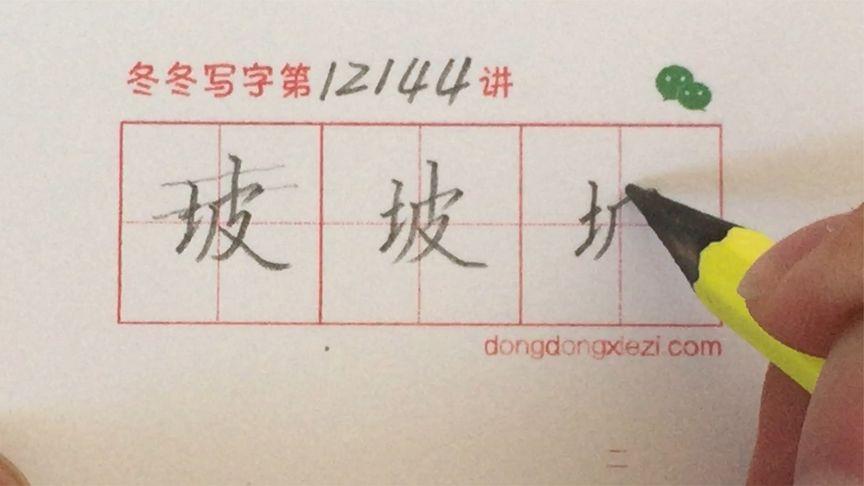 冬冬写字第12144讲
坡 坡
dongdongxiezi.com
二